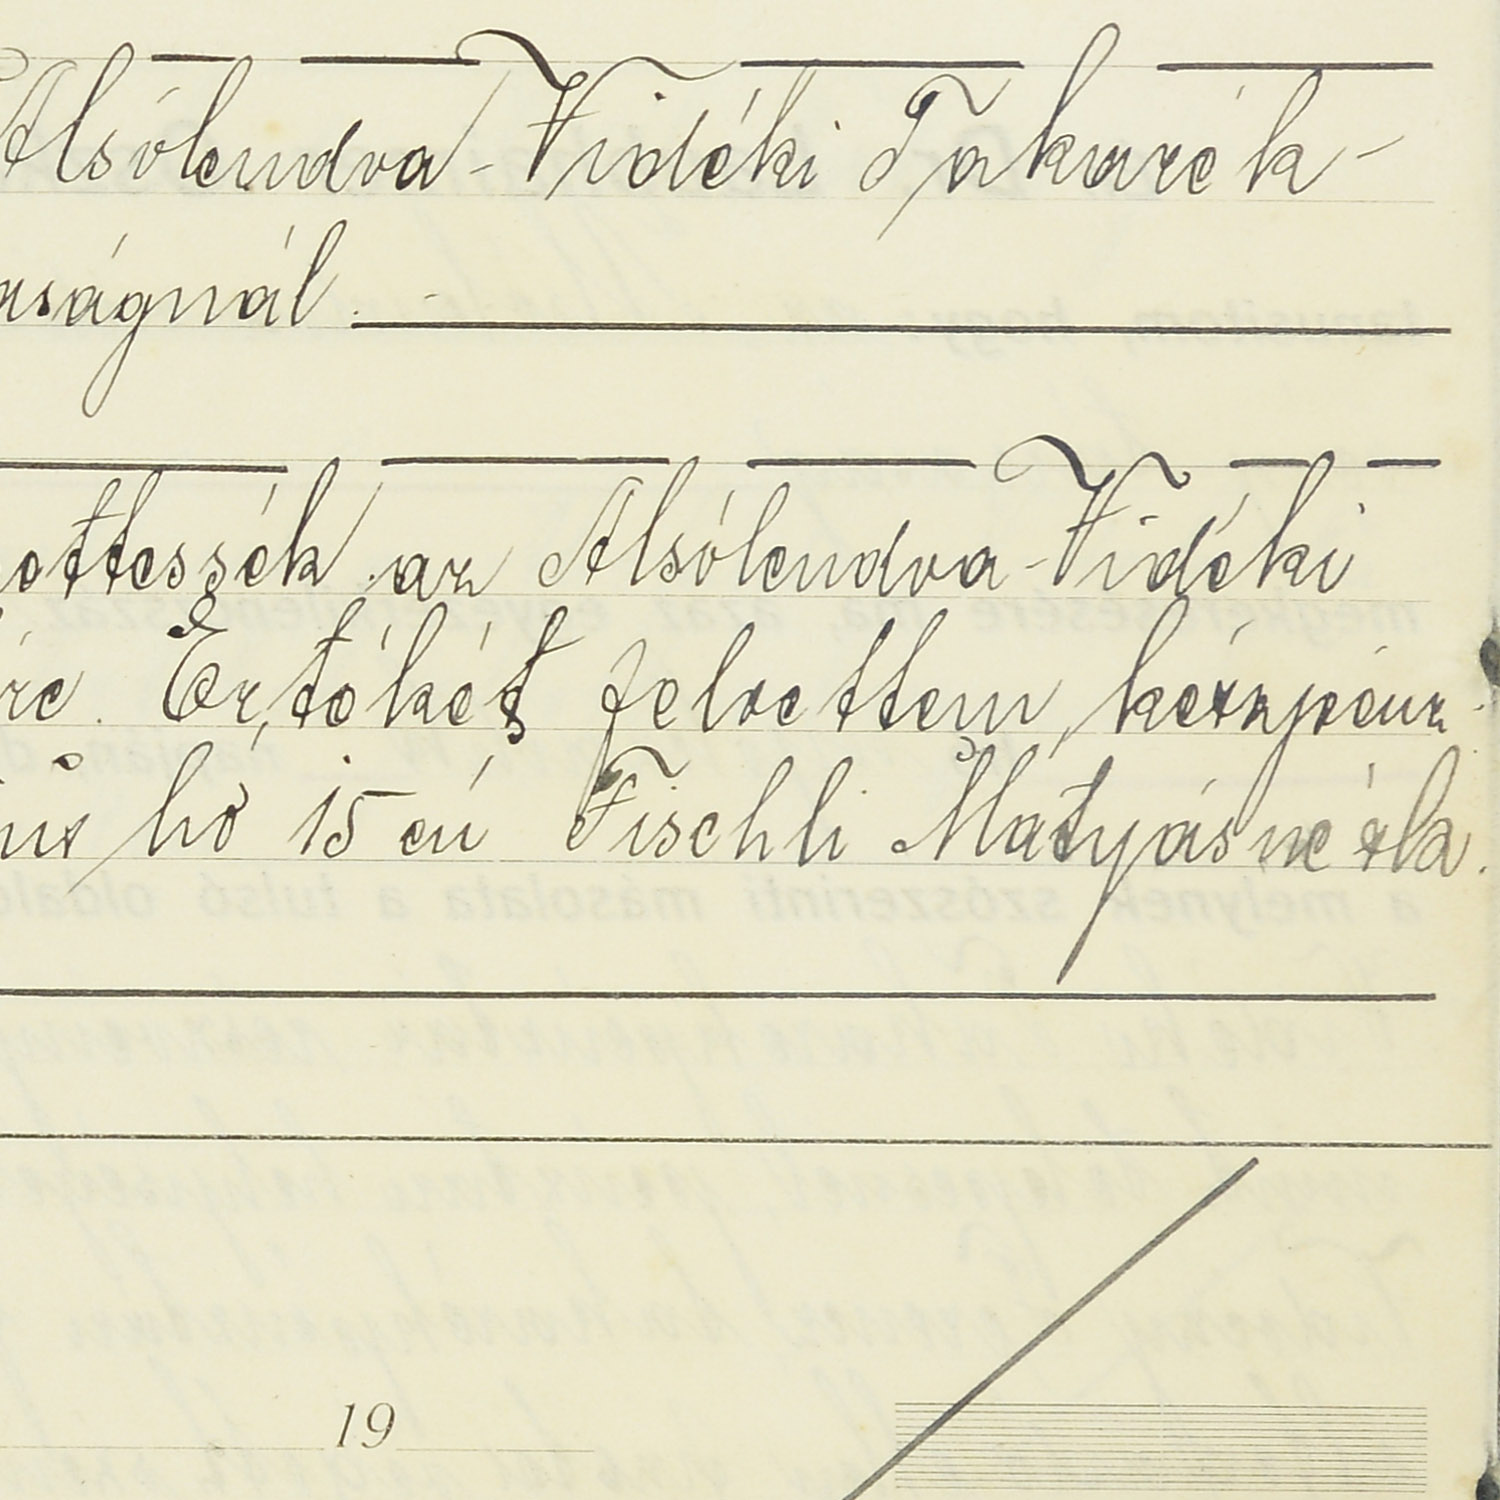 Alsólendva-Vidéki Takarék-
aságnál.
ettessék az Alsólendva-Vidéki
re. Értékét felvettem, készpénz
hó 15 én Fischli Mátyásné
19